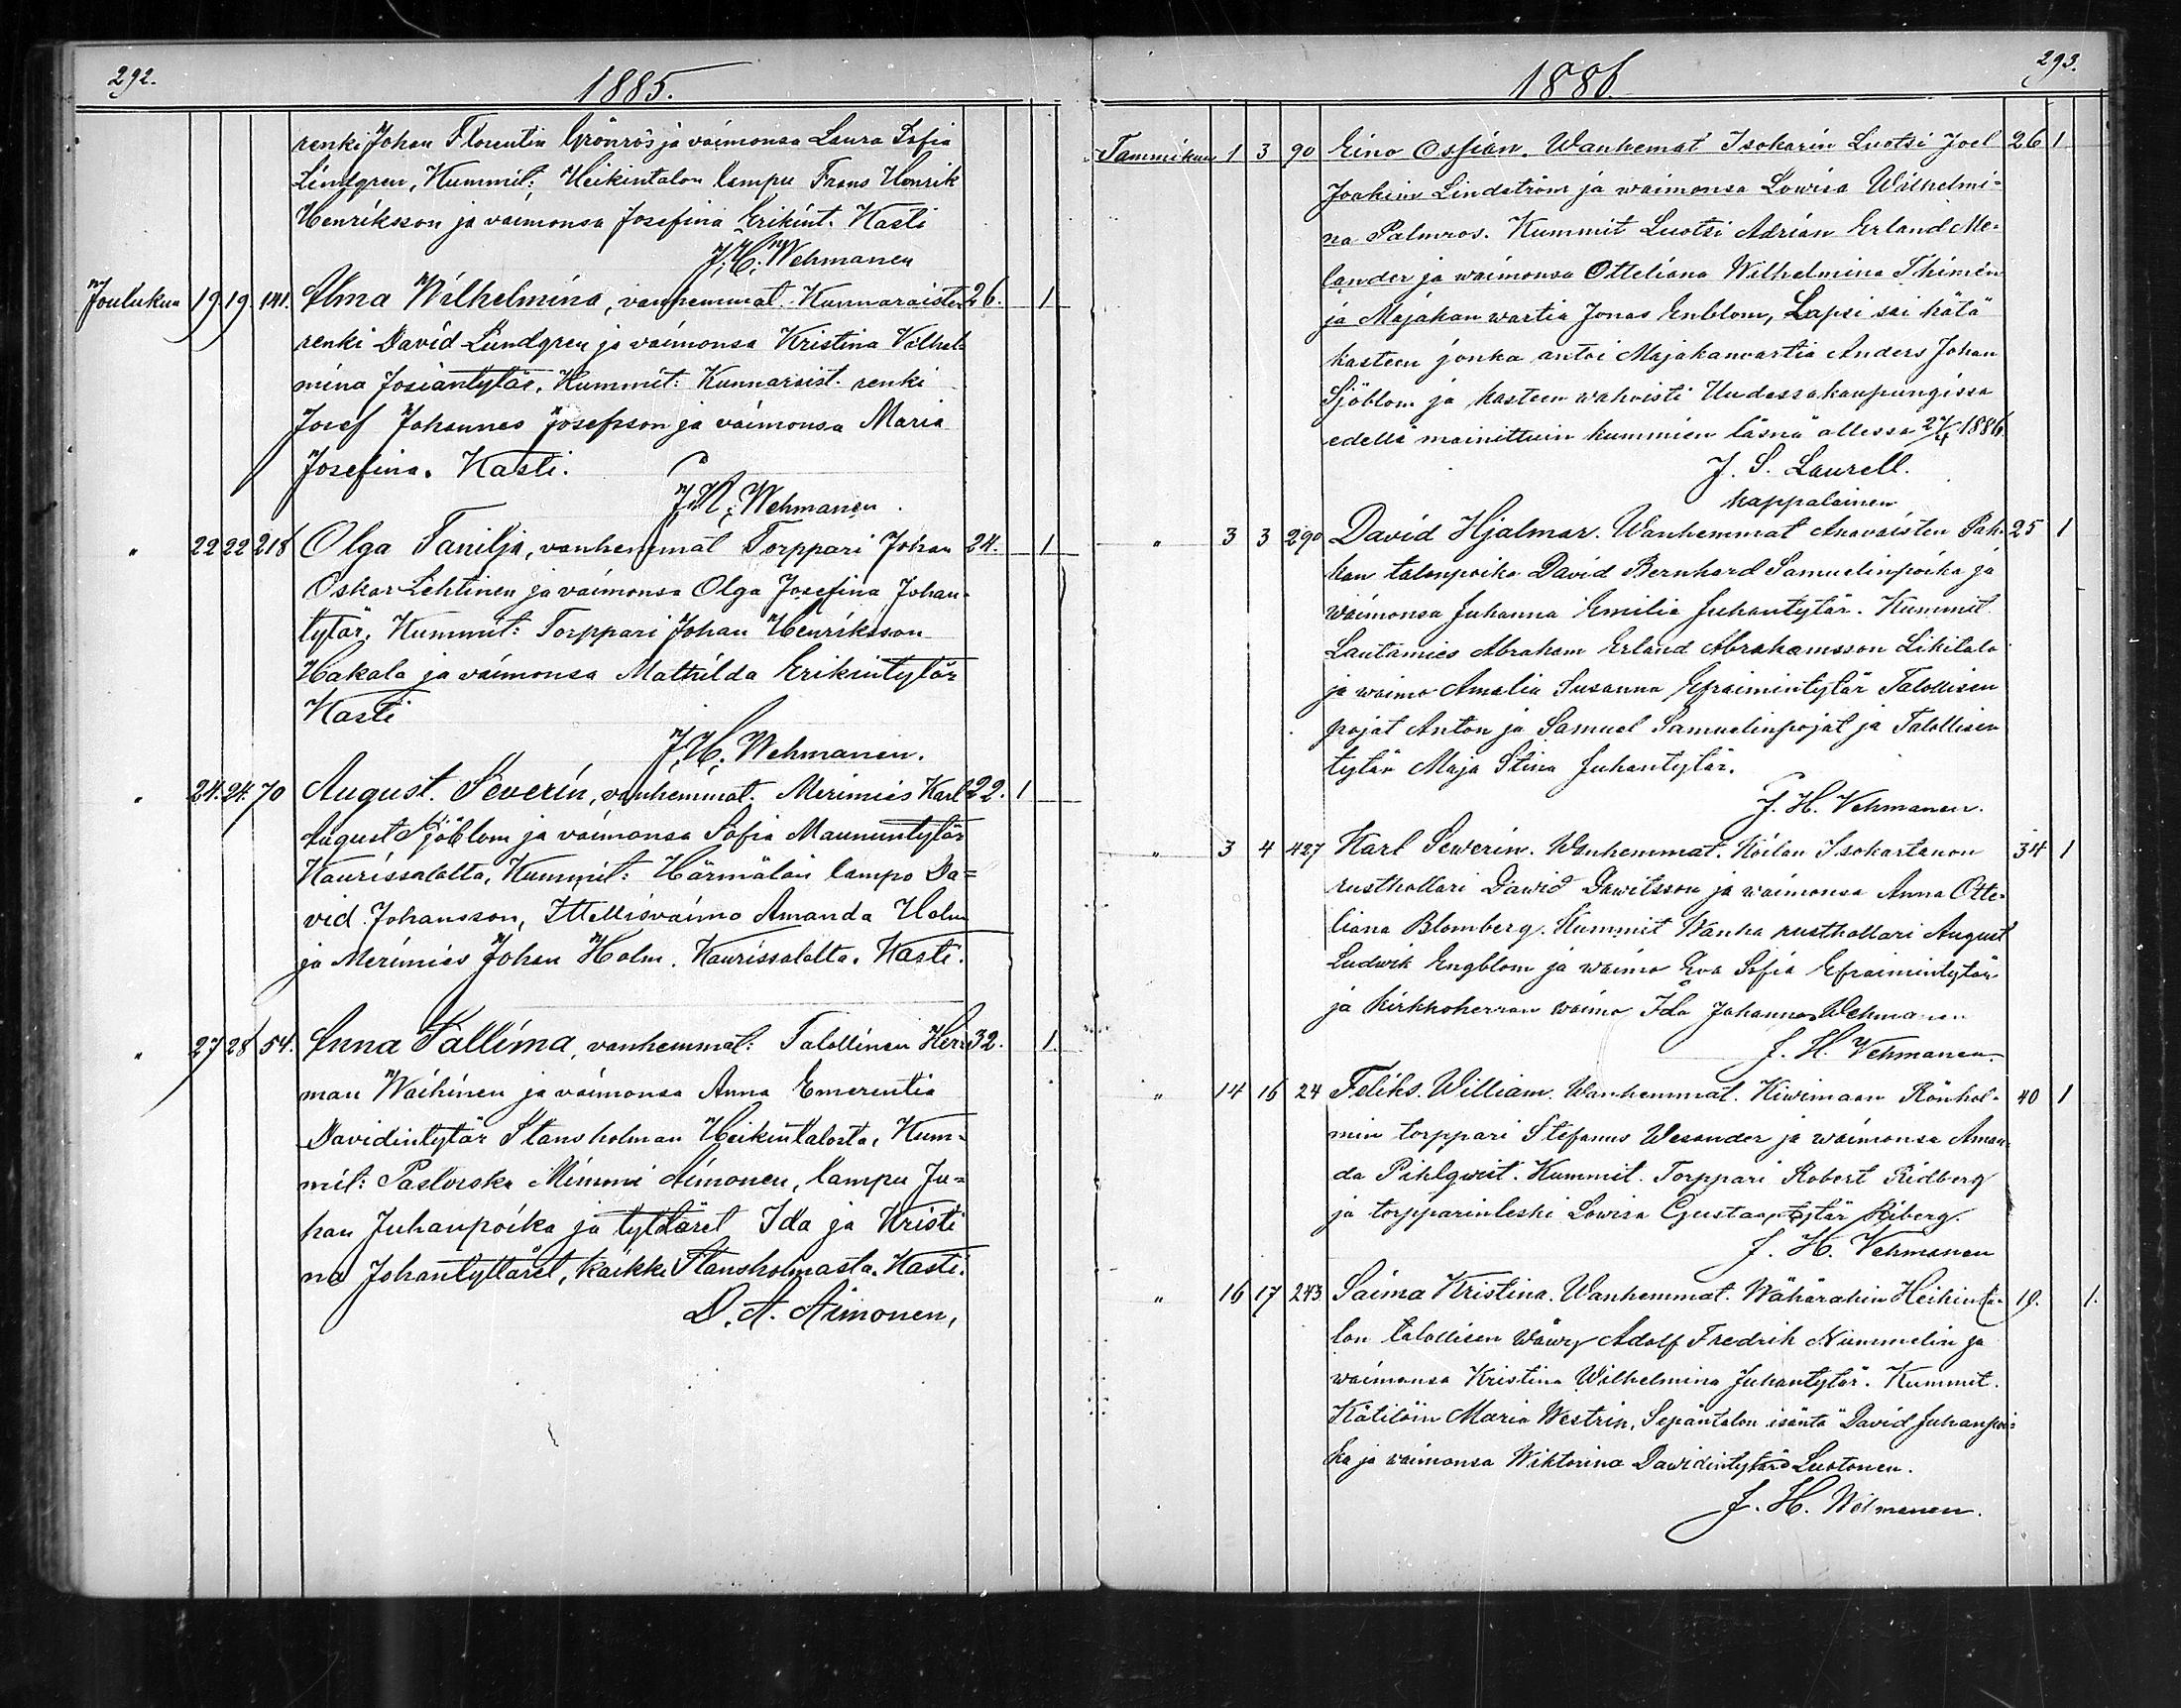 292.
1885.
renki Johan Florentin Grönros ja vaimonsa Laura Sofia
Lindgren, Kummit: Heikintalon lampu Frans Henrik
Henriksson ja vaimonsa Josefina Erikint. Kasti
J. H. Wehmanen
Joulukuu 19 19 141. Alma Wilhelmina, vanhemmat. Kunnaraisten 26. 1
renki David Lundgren ja vaimonsa Kristina Vilhel=
mina Josiantytär. Kummit: Kunnaraist. renki
Josef Johannes Josefsson ja vaimonsa Maria
Josefina. Kasti.
J. H. Wehmanen.
" 22 22 218 Olga Tanilja, vanhemmat Torppari Johan 24. 1
Oskar Lehtinen ja vaimonsa Olga Josefina Johan-
tytär. Kummit: Torppari Johan Henriksson
Hakala ja vaimonsa Mathilda Erikintytär
Kasti
J. H. Wehmanen.
" 24. 24. 70 August. Severin, vanhemmat. Merimies Karl 22. 1
August Sjöblom ja vaimonsa Sofia Maununtytär
Kaurissalolta, Kummit: Härmälän lampo Da=
vid Johansson, Ittellisvaimo Amanda Holm
ja Merimies Johan Holm. Kaurissalolta. Kasti.
" 27 28 54. Anna Sallima, vanhemmat: Talollinen Her= 32. 1.
man Waihinen ja vaimonsa Anna Emerentia
Davidintytär Stansholman Heikintalosta, Kum-
mit: Pastorska Mimmi Aimonen, lampu Ju=
han Juhanpoika ja tyttäret Ida ja Kristi
na Johantyttäret, kaikki Stansholmasta. Kasti.
D. A. Aimonen,
293.
1886
Tammikuu 1 3 90 Eino Ossian. Wanhemat Isokarin Luotsi Joel 26 1
Joakim Lindström ja waimonsa Lowisa Wilhelmi=
na Palmros. Kummit Luotsi Adrian Erland Me=
lander ja waimonsa Otteliana Wilhelmina Thimén
ja Majakan wartia Jonas Enblom, Lapsi sai hätä
kasteen jonka antoi Majakanvartia Anders Johan
Sjöblom ja kasteen wahvisti Uudessakaupungissa
edellä mainittuin kummien läsnä ollessa 27/4 1886.
J. S. Laurell.
kappalainen
" 3 3 290 David Hjalmar. Wanhemmat Anavaisten Pah- 25 1
kan talonpoika David Bernhard Samuelinpoika ja
waimonsa Juhanna Emilia Juhantytär. Kummit
Lautamies Abraham Erland Abrahamsson Likitalo
ja waimo Amalia Susanna Efraimintytär Talollisen
pojat Anton ja Samuel Samuelinpojat ja Talollisen
tytär Maja Stina Juhantytär.
J. H. Vehmanen.
" 3 4 427 Karl Sewerin. Wanhemmat. Koilan Isokartanon 34 1
rusthollari Dawid Dawitsson ja waimonsa Anna Otte-
liana Blomberg. Kummit Wanha rusthollari August
Ludwik Engblom ja waimo Eva Sofia Efraimintytär
ja kirkkoherran waimo Ida Johanna Wehmanen
J. H. Vehmanen.
" 14 16 24 Feliks. William. Wanhemmat. Kiwimaan Rönhol- 40 1
min torppari Stefanus Wesander ja waimonsa Aman-
da Pihlqwist. Kummit. Torppari Robert Ridberg
ja torpparinleski Lowisa Gustaantytär Riberg.
J. H. Vehmanen
" 16 17 243 Saima Kristina. Wanhemmat. Wähärahin Heikinta- 19. 1.
lon talollisen wäwy Adolf Fredrik Nummelin ja
waimonsa Kristina Wilhelmina Juhantytär. Kummit.
Kätilöin Maria Westrin, Sepäntalon isäntä David Juhanpoi=
ka ja vaimonsa Wiktorina Dawidintytär Luotonen.
J. H. Wehmanen.